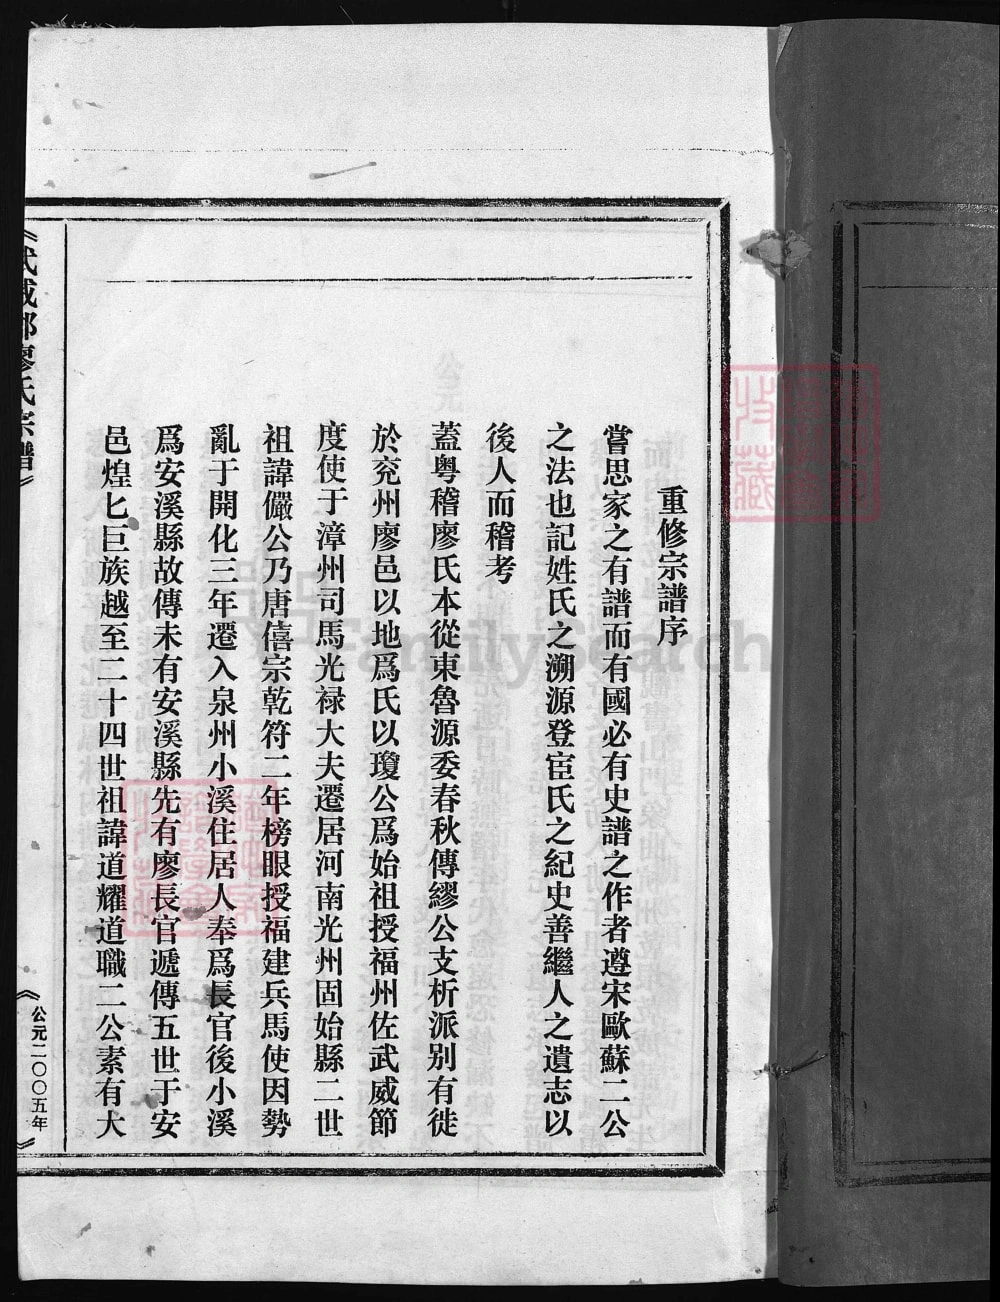 重修宗譜序
嘗思家之有譜而有國必有史譜之作者遵宋歐蘇二公
之法也記姓氏之溯源登宦氏之紀史善繼人之遺志以
後人而稽考
蓋粵稽廖氏本從東魯源委春秋傳繆公支析派別有徙
於兗州廖邑以地爲氏以瓊公爲始祖授福州佐武威節
度使于漳州司馬光禄大夫遷居河南光州固始縣二世
祖諱儼公乃唐僖宗乾符二年榜眼授福建兵馬使因勢
亂于開化三年遷入泉州小溪住居人奉爲長官後小溪
爲安溪縣故傳未有安溪縣先有廖長官遞傳五世于安
邑煌匕巨族越至二十四世祖諱道耀道職二公素有大
《武威郡廖氏宗譜》
《公元二〇〇五年》
FamilySearch